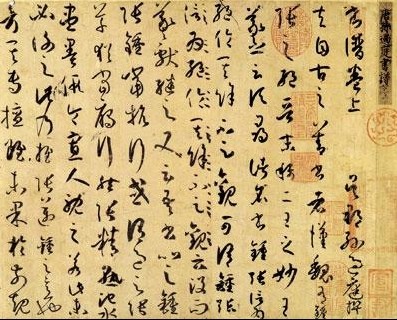 唐孫過庭書譜
書譜卷上 吳郡孫過庭撰
夫自古之善書者漢魏有鍾
張之絕晉末稱二王之妙王
羲之云頃尋諸名書鍾張信為
絕倫其餘不足觀可謂鍾張
為絕倫其餘不足觀云沒而
羲獻繼之又云吾書比之鍾
張鍾當抗行或謂過之張
草猶當鴈行然張精熟池水
盡墨假令寡人耽之若此未
必謝之此乃推張邁鍾之意也
考其專擅雖未果於前規